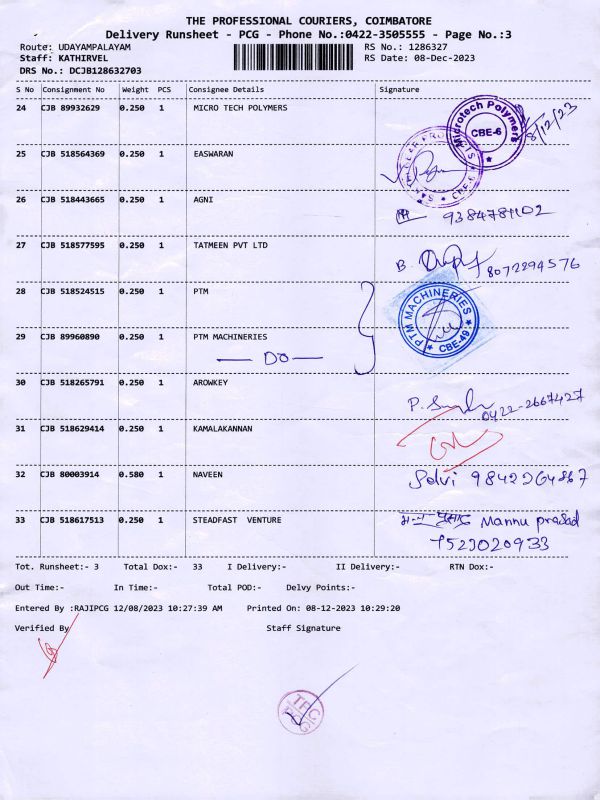 THE PROFESSIONAL COURIERS, COIMBATORE
Delivery Runsheet - PCG - Phone No.:0422-3505555 - Page No.:3
Route: UDAYAMPALAYAM RS No.: 1286327
Staff: KATHIRVEL RS Date: 08-Dec-2023
DRS No.: DCJB128632703
S No Consignment No Weight PCS Consignee Details Signature
24 CJB 89932629 0.250 1 MICRO TECH POLYMERS Microtech Polymers CBE-6 8/12/23
25 CJB 518564369 0.250 1 EASWARAN CBE-6
26 CJB 518443665 0.250 1 AGNI 9384781102
27 CJB 518577595 0.250 1 TATMEEN PVT LTD B. 8072294576
28 CJB 518524515 0.250 1 PTM PTM MACHINERIES CBE-49
29 CJB 89960890 0.250 1 PTM MACHINERIES
DO
30 CJB 518265791 0.250 1 AROWKEY P. 0422-2667427
31 CJB 518629414 0.250 1 KAMALAKANNAN
32 CJB 80003914 0.580 1 NAVEEN Selvi 9842264867
33 CJB 518617513 0.250 1 STEADFAST VENTURE Mannu prasad
7523020933
Tot. Runsheet:- 3 Total Dox:- 33 I Delivery:- II Delivery:- RTN Dox:-
Out Time:- In Time:- Total POD:- Delvy Points:-
Entered By :RAJIPCG 12/08/2023 10:27:39 AM Printed On: 08-12-2023 10:29:20
Verified By Staff Signature